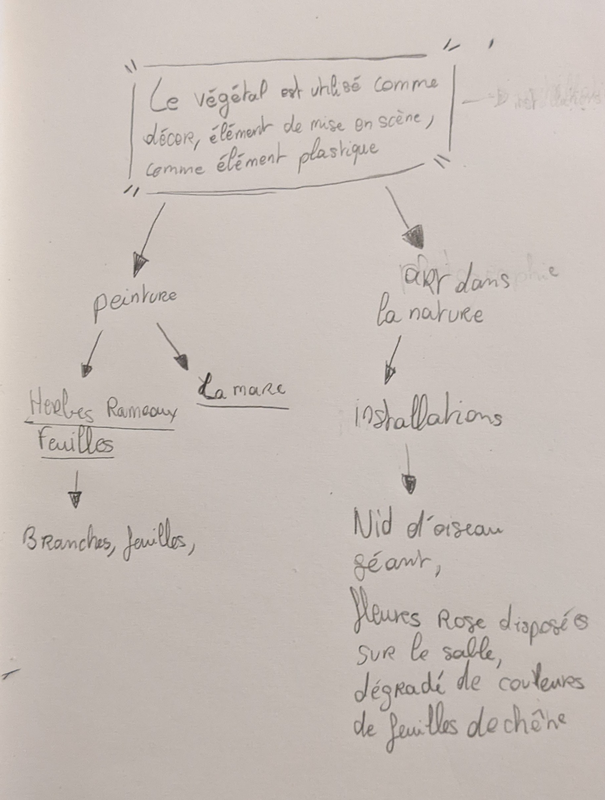 Le végétal est utilisé comme
décor, élément de mise en scène,
comme élément plastique
peinture
art dans
la nature
Herbes Rameaux
Feuilles
La mare
installations
Branches, feuilles,
Nid d'oiseau
géant,
fleures Rose disposées
sur le sable,
dégradé de couleures
de feuilles de chêne